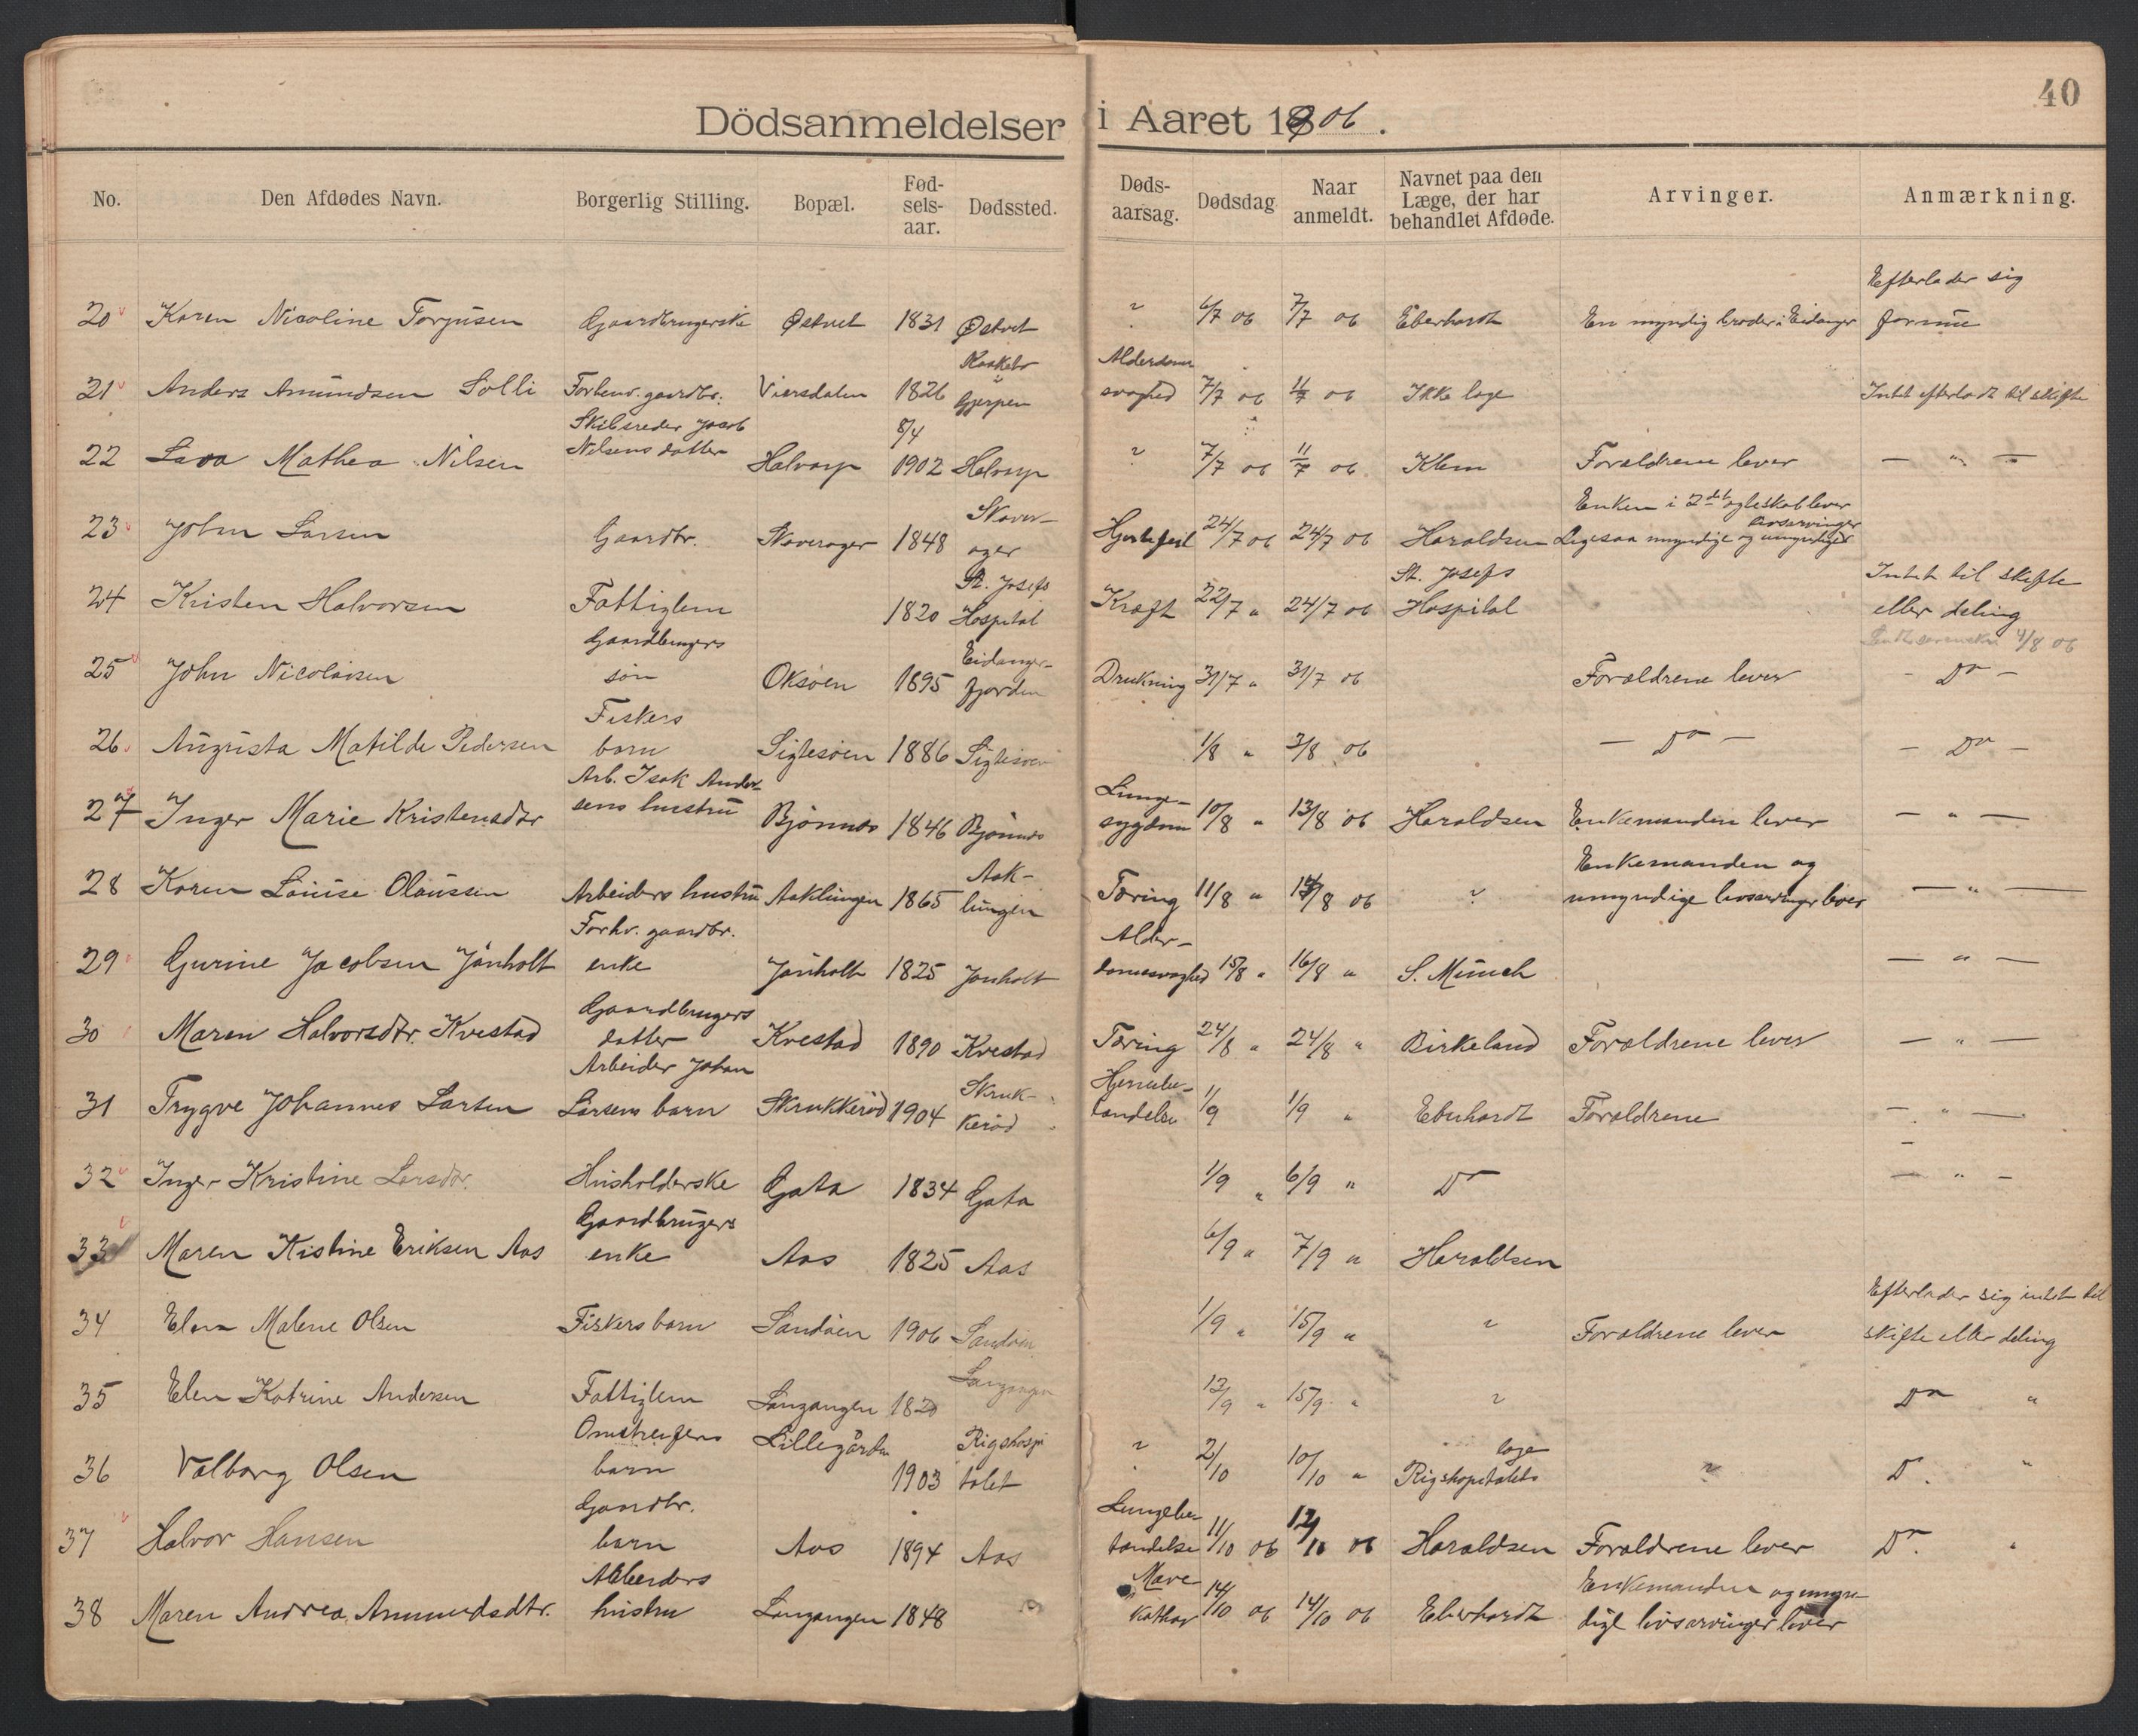 40
Dödsanmeldelser i Aaret 1906.
No. Den Afdødes Navn. Borgerlig Stilling. Bopæl. Fød-sels-aar. Dødssted. Døds-aarsag. Dødsdag Naar anmeldt. Navnet paa den Læge, der har behandlet Afdøde. Arvinger. Anmærkning.
20 Karen Nicoline Torjusen Gaardbrugerske Østvet 1831 Østvet ? 6/7 06 7/7 06 Eberhardt En myndig broder i Eidanger Efterlader sig formue
21 Anders Amundsen Solli Forhenv. gaardbr. Viersdalen 1826 Gjerpen Alderdoms svaghed 7/7 06 11/7 06 Ikke læge Intet efterladt til skifte
22 Mathea Nilsen Skibsreder Jacob Nilsens datter Halvarp 8/4 1902 Halvarp ? 7/7 06 11/7 06 Klem Forældrene lever — " —
23 John Larsen Gaardbr. Skaverager 1848 Skaver-ager Hjertefeil 24/7 06 24/7 06 Haraldsen Enken i 2det egteskab lever Ligesaa myndige og umyndige livsarvinger
24 Kristen Halvorsen Fattiglem 1820 St. Josefs Hospital Kræft 22/7 " 24/7 06 St. Josefs Hospital Intet til skifte eller deling
4/8 06
25 John Nicolaisen Gaardbrugers søn Oksøen 1895 Eidanger-fjorden Drukning 31/7 " 31/7 06 Forældrene lever - Do -
26 Augusta Matilde Pedersen Fiskers barn Siglesøen 1886 Siglesøen 1/8 " 3/8 06 — Do — - Do -
27 Inger Marie Kristensdtr Arb. Isak Ander-sens hustru Bjønnes 1846 Bjønnes Lunge-sygdom 10/8 " 13/8 06 Haraldsen Enkemanden lever — " —
28 Karen Louise Olaussen Arbeiders hustru Aaklungen 1865 Aak-lungen Tæring 11/8 " 14/8 06 ? Enkemanden og umyndige livsarvinger lever — " —
29 Gurine Jacobsen Jønholt Forhv. gaardbr. enke Jønholt 1825 Jønholt Alder-domssvaghed 15/8 " 16/8 " S. Münch — " —
30 Maren Halvorsdtr. Kvestad Gaardbrugers datter Kvestad 1890 Kvestad Tæring 24/8 " 24/8 " Birkeland Forældrene lever — " —
31 Trygve Johannes Larsen Arbeider Johan Larsens barn Skrukkerød 1904 Skruk-kerød Hjernebe-tændelse 1/9 1/9 " Eberhardt Forældrene — " —
32 Inger Kristine Larsdtr. Husholderske Gata 1834 Gata 1/9 " 6/9 " Do — " —
33 Maren Kistine Eriksen Aas Gaardbrugers enke Aas 1825 Aas 6/9 " 7/9 " Haraldsen
34 Malene Olsen Fiskers barn Sandøen 1906 Sandøen 1/9 " 15/9 " ? Forældrene lever Efterlader sig intet til skifte eller deling
35 Elen Katrine Andersen Fattiglem Langangen 1820 Langangen 13/9 " 15/9 " ? Do "
36 Valborg Olsen Omstreifers barn Lillegården 1903 Rigshospi talet ? 2/10 10/10 " læge Rigshopitalets ? D. "
37 Halvor Hansen Gaardbr. barn Aas 1894 Aas Lungebe-tændelse 11/10 06 12/10 06 Haraldsen Forældrene lever Do. "
38 Maren Andrea Ammundsdtr. Abeiders hustru Langangen 1848 Mave Kathar 14/10 06 14/10 06 Eberhardt Enkemanden og umyn-dige livsarvinger lever